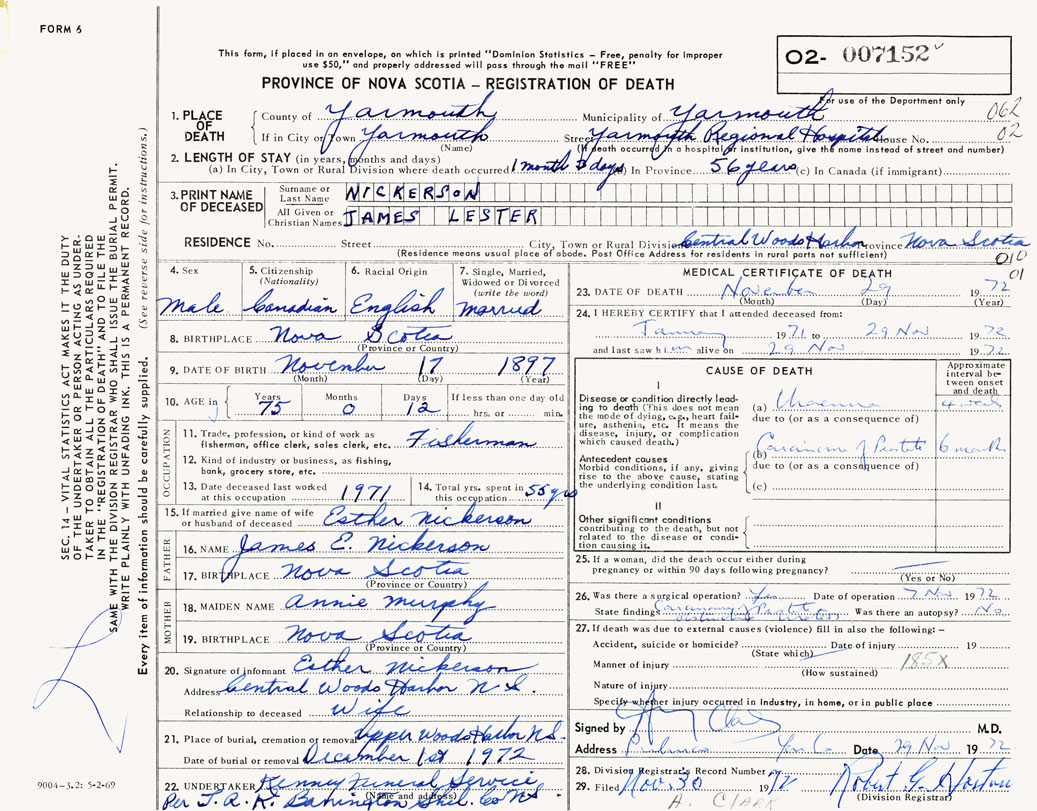 FORM 6
This form, if placed in an envelope, on which is printed "Dominion Statistics – Free, penalty for improper
use $50," and properly addressed will pass through the mail "FREE"
O2- 007152
PROVINCE OF NOVA SCOTIA – REGISTRATION OF DEATH
For use of the Department only
1. PLACE OF DEATH
County of Yarmouth Municipality of Yarmouth 062
If in City or Town Yarmouth Street Yarmouth Regional Hospital House No. 02
(Name) (If death occurred in a hospital or institution, give the name instead of street and number)
2. LENGTH OF STAY (in years, months and days)
(a) In City, Town or Rural Division where death occurred 1 month 3 days (b) In Province 56 years (c) In Canada (if immigrant)
3. PRINT NAME OF DECEASED
Surname or Last Name NICKERSON
All Given or Christian Names JAMES LESTER
RESIDENCE No. Street City, Town or Rural Division Central Woods Harbor Province Nova Scotia
(Residence means usual place of abode. Post Office Address for residents in rural parts not sufficient)
010
01
4. Sex Male
5. Citizenship (Nationality) Canadian
6. Racial Origin English
7. Single, Married, Widowed or Divorced (write the word) married
8. BIRTHPLACE Nova Scotia
(Province or Country)
9. DATE OF BIRTH November 17 1897
(Month) (Day) (Year)
10. AGE in Years 75 Months 0 Days 12 If less than one day old hrs. or min.
OCCUPATION
11. Trade, profession, or kind of work as
fisherman, office clerk, sales clerk, etc. Fisherman
12. Kind of industry or business, as fishing,
bank, grocery store, etc.
13. Date deceased last worked
at this occupation 1971
14. Total yrs. spent in
this occupation 55 yrs
15. If married give name of wife
or husband of deceased Esther Nickerson
FATHER
16. NAME James E. Nickerson
17. BIRTHPLACE Nova Scotia
(Province or Country)
MOTHER
18. MAIDEN NAME Annie Murphy
19. BIRTHPLACE Nova Scotia
(Province or Country)
20. Signature of informant Esther Nickerson
Address Central Woods Harbor N S.
Relationship to deceased Wife
21. Place of burial, cremation or removal Upper Woods Harbor NS.
Date of burial or removal December 1st 1972
22. UNDERTAKER Kenney Funeral Service
(Name and address)
Per J. A. K. Barrington Shel. Co NS.
MEDICAL CERTIFICATE OF DEATH
23. DATE OF DEATH November 29 1972
(Month) (Day) (Year)
24. I HEREBY CERTIFY that I attended deceased from:
January 1971 to 29 Nov 1972
and last saw him alive on 29 Nov 1972
CAUSE OF DEATH
Approximate interval between onset and death
I
Disease or condition directly leading
to death (This does not mean
the mode of dying, e.g., heart failure,
asthenia, etc. It means the
disease, injury, or complication
which caused death.)
(a) Uraemia 4 weeks
due to (or as a consequence of)
Antecedent causes
Morbid conditions, if any, giving
rise to the above cause, stating
the underlying condition last.
(b) Carcinoma of Prostate 6 months
due to (or as a consequence of)
(c)
II
Other significant conditions
contributing to the death, but not
related to the disease or condition
causing it.
25. If a woman, did the death occur either during
pregnancy or within 90 days following pregnancy?
(Yes or No)
26. Was there a surgical operation? Yes Date of operation 7 Nov 1972
State findings Carcinoma of Prostate
Was there an autopsy? No
27. If death was due to external causes (violence) fill in also the following: –
Accident, suicide or homicide? Date of injury 19
(State which)
Manner of injury 185X
(How sustained)
Nature of injury
Specify whether injury occurred in industry, in home, or in public place
Signed by M.D.
Address Pubnico Yar. Co Date 29 Nov 1972
28. Division Registrar's Record Number
29. Filed Nov. 30 1972
(Division Registrar)
A. CLARK
SEC. 14 – VITAL STATISTICS ACT MAKES IT THE DUTY
OF THE UNDERTAKER OR PERSON ACTING AS UNDER-
TAKER TO OBTAIN ALL THE PARTICULARS REQUIRED
IN THE "REGISTRATION OF DEATH" AND TO FILE THE
SAME WITH THE DIVISION REGISTRAR WHO SHALL ISSUE THE BURIAL PERMIT.
WRITE PLAINLY WITH UNFADING INK. THIS IS A PERMANENT RECORD.
Every item of information should be carefully supplied. (See reverse side for instructions.)
9004–3.2: 5-2-69